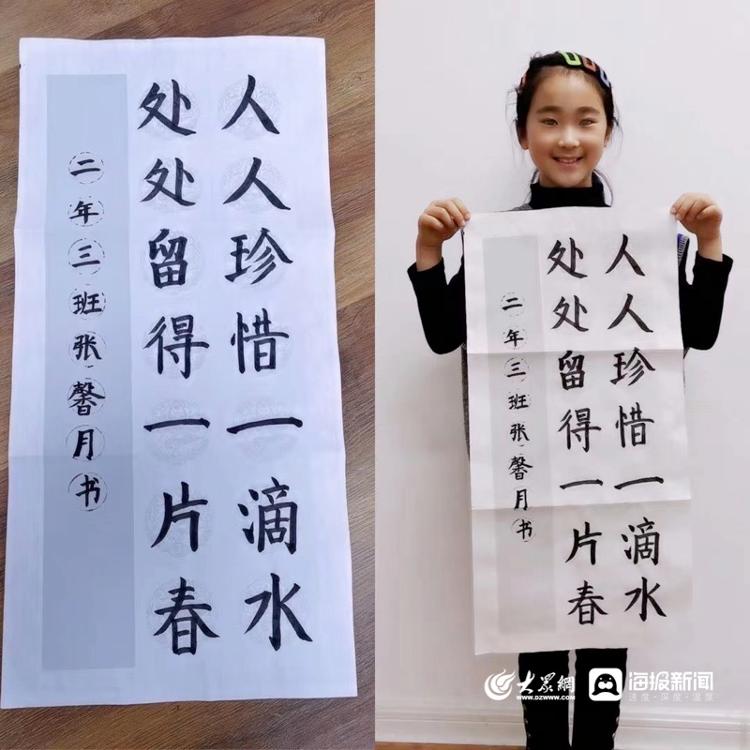 人人珍惜一滴水
处处留得一片春
二年三班张馨月书
人人珍惜一滴水
处处留得一片春
二年三班张馨月书
大众網
WWW.DZWWW.COM
海报新闻
速度·深度·温度